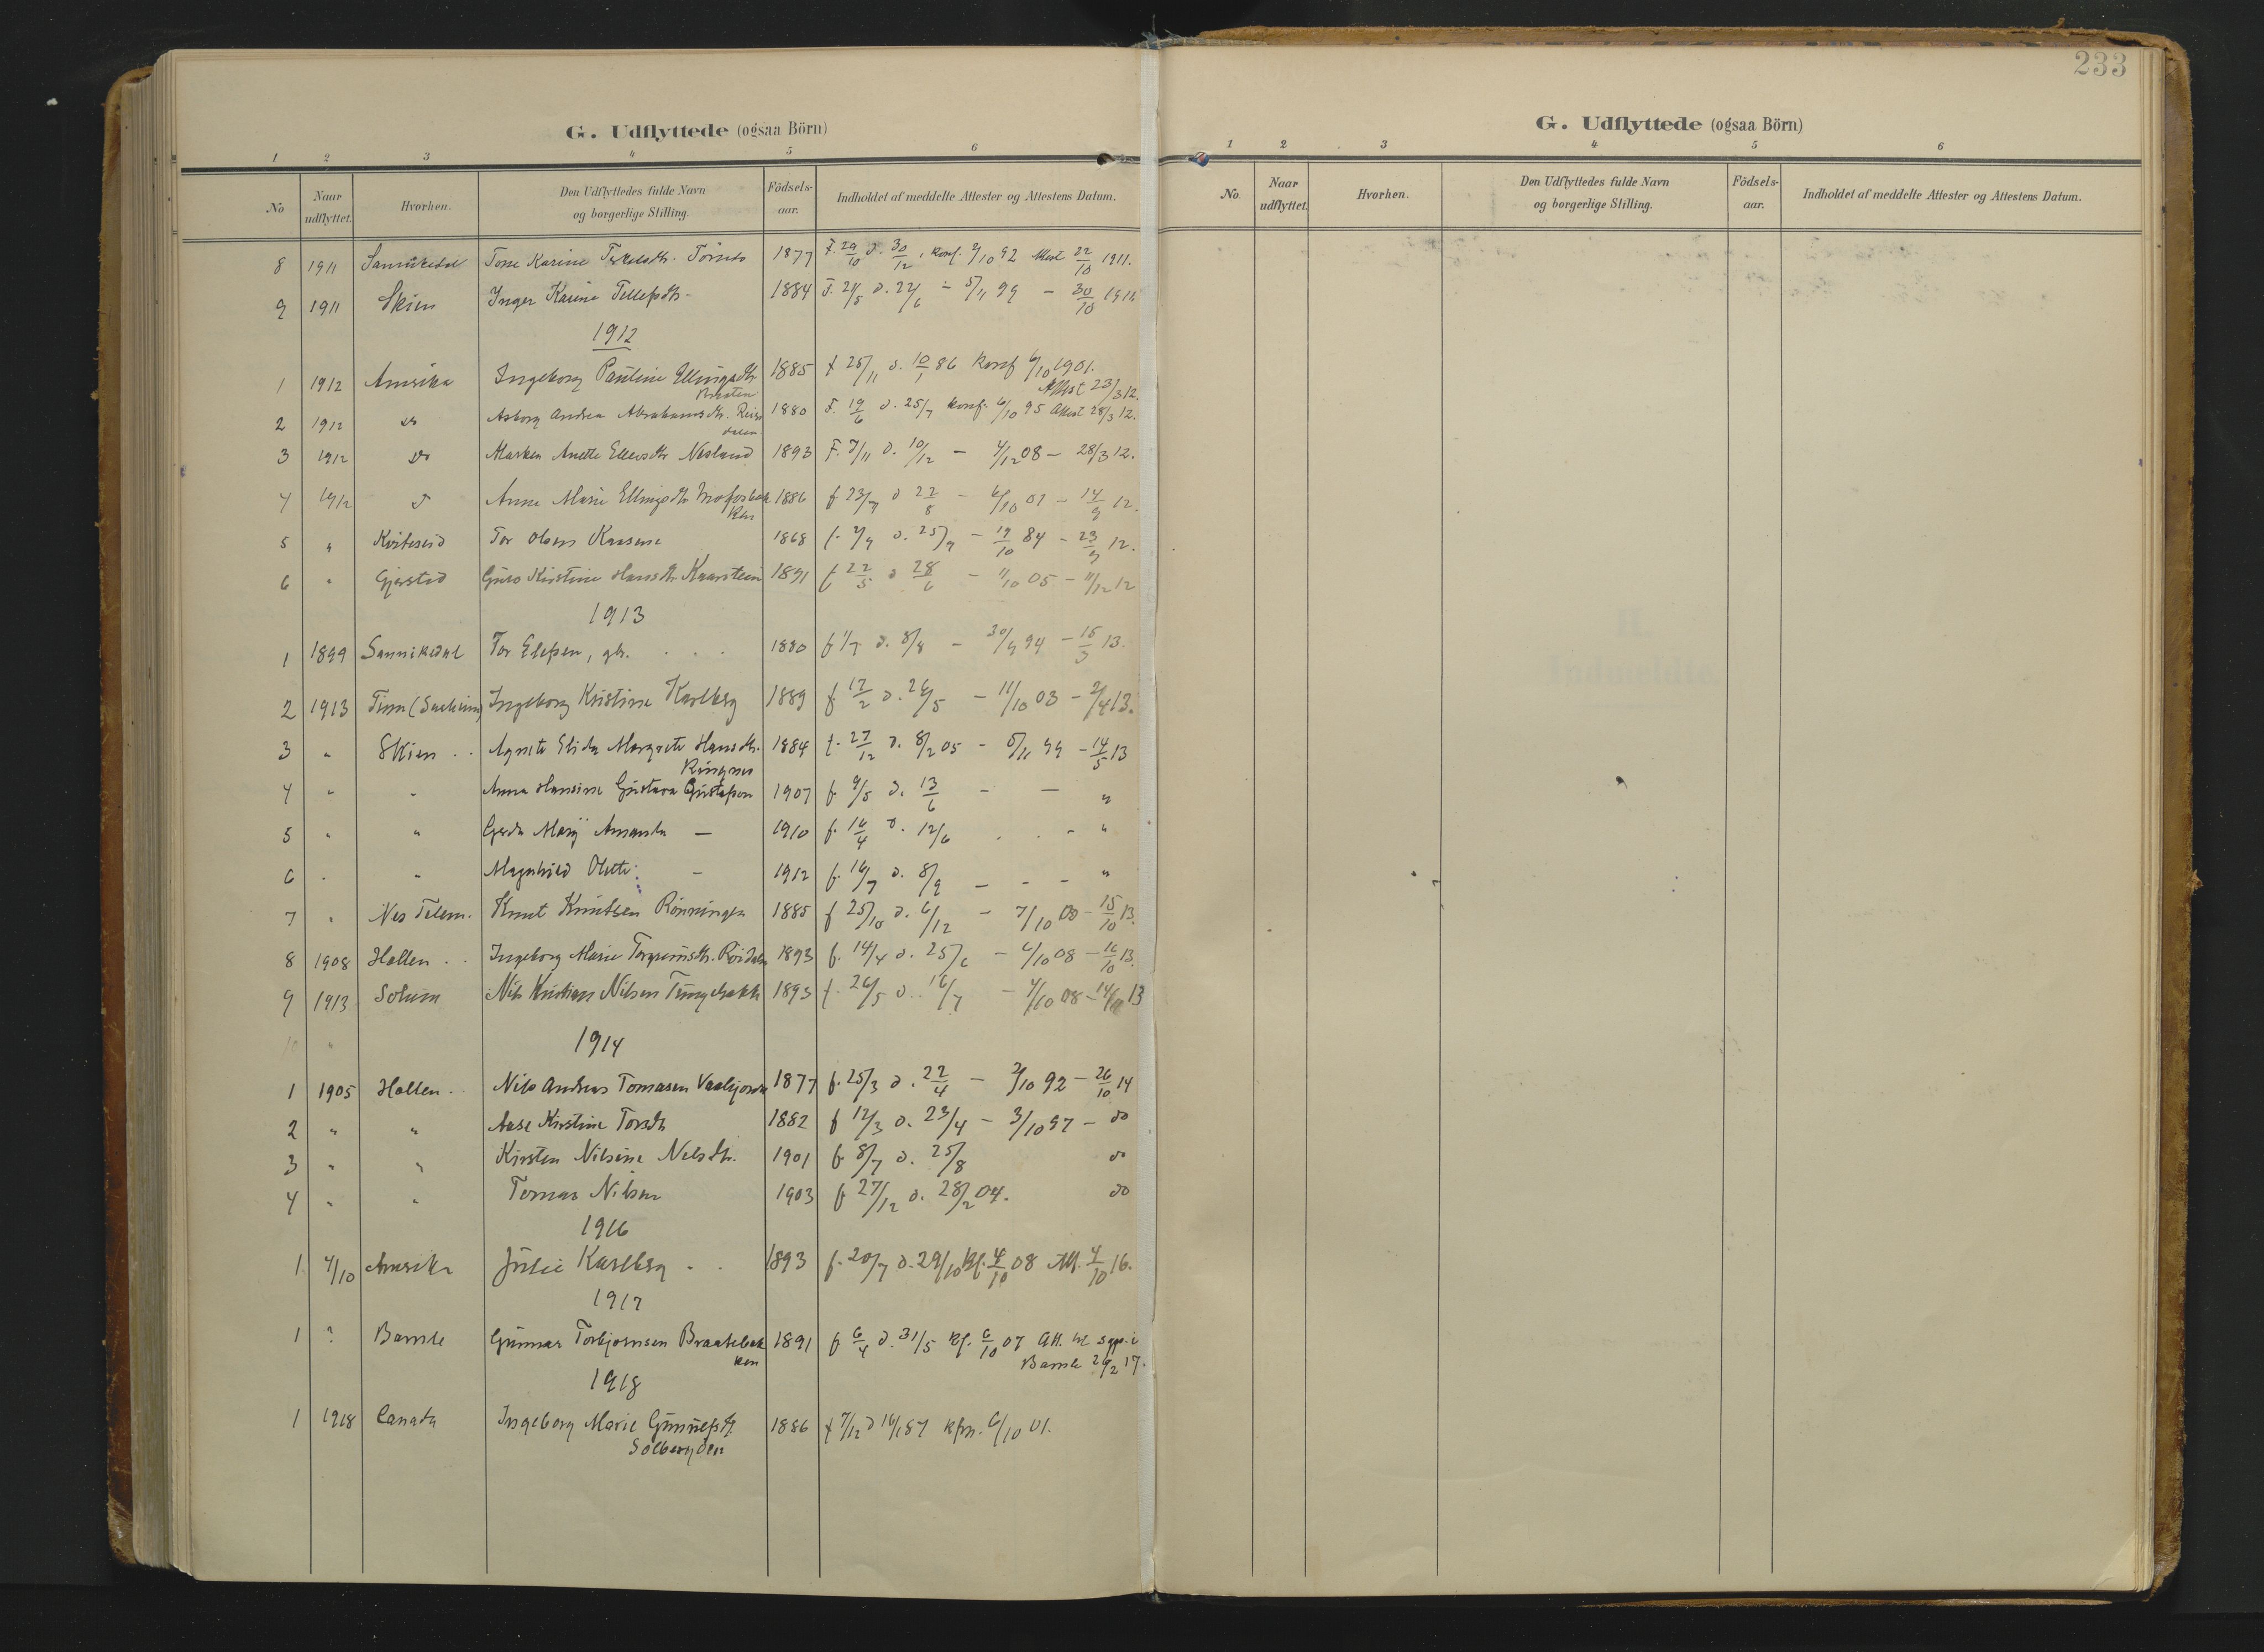 G. Udflyttede (ogsaa Börn)
1 2 3 4 5 6
No Naar udflyttet. Hvorhen. Den Udflyttedes fulde Navn og borgerlige Stilling. Födsels-aar. Indholdet af meddelte Attester og Attestens Datum.
8 1911 Sannikedal Tone Karine 1877 F. 29/10 d. 30/12, konf. 2/10 92 Attest 22/10 1911.
9 1911 Skien Inger Karine Tellefsdtr. 1884 F. 21/5 d. 22/6 - 5/11 99 - 30/10 1911
1912
1 1912 Amerika Ingeborg Pauline Ellingsdtr 1885 f 25/11 d. 10/1 86 Konf 6/10 1901.
Attest 23/3 12.
2 1912 do Asborg Andrea Abrahamsdtr. 1880 F. 19/6 d. 25/7 konf. 6/10 95 Attest 28/3 12.
3 1912 do Marken Anette Ellevsdtr Nesland 1893 F. 7/11 d. 10/12 - 4/12 08 - 28/3 12.
4 1912 d Anne Marie Ellingsdtr 1886 f 23/7 d 22/8 - 6/10 01 - 14/9 12.
5 " Kviteseid Tor Olsen 1868 f. d. 25/7 - 19/10 84 - 23/9 12.
6 " Gjerstad Guro Kirstine Hansdtr. Kaarstein 1891 f 22/5 d 28/6 - 11/10 05 - 11/12 12
1913
1 1899 Sannikedal Tor Elefsen, gb. 1880 f 1/7 d. 8/8 - 30/9 94 - 15/3 13.
2 1913 Tinn Ingeborg Kristine Karlberg 1889 f 12/2 d. 26/5 - 11/10 03 - 2/4 13.
3 " Skien Agnete Elida Margrete Hansdtr. 1884 f. 27/12 d. 8/2 05 - 5/11 99 - 14/5 13
Ringnes
4 " " Anna Hansine Gustava Gustafson 1907 f. 9/5 d. 13/6 - - "
5 " " Gerda Mary Amanda - 1910 f. 16/4 d. 12/6 - "
6 " " Magnhild Olette - 1912 f. 16/7 d. 8/9 - - - "
7 " Nes Telem. Knut Knutsen Rönningen 1885 f 25/10 d. 6/12 - 7/10 00 - 15/10 13.
8 1908 Hollen Ingeborg Marie Torgrimsdtr. 1893 f. 14/4 d. 25/6 - 4/10 08 - 16/10 13.
9 1913 Solum Nils Kristian Nilsen 1893 f. 26/5 d. 16/7 - 4/10 08 - 13
10 "
1914
1 1905 Hollen Nils Andreas Tomasen 1877 f. 25/3 d. 22/4 - 2/10 92 - 26/10 14
2 " " Aase Kirstine Torsdtr 1882 f 12/3 d. 23/4 - 3/10 97 - do
3 " " Kirsten Nilsine Nelsdtr. 1901 f 8/7 d. 25/8 do
4 " " Tomas Nilsen 1903 f 27/12 d. 28/2 04. do
1916
1 4/10 Amerika Julie Karlberg 1893 f. 20/7 d. 29/10 Kf. 4/10 08 Att. 4/10 16.
1917
1 ? Bamle Gunnar Torbjornsen Braatebak 1891 f 6/4 d. 31/5 Kf. 6/10 07 Att. til sgpr. i
ken Bamle 26/2 17.
1918
1 1918 Canada Ingeborg Marie Gunnulfsdtr. 1886 f 7/12 d 16/1 87 kfm. 6/10 01.
Solbergden
233
G. Udflyttede (ogsaa Börn)
1 2 3 4 5 6
No. Naar udflyttet. Hvorhen. Den Udflyttedes fulde Navn og borgerlige Stilling. Födsels-aar. Indholdet af meddelte Attester og Attestens Datum.